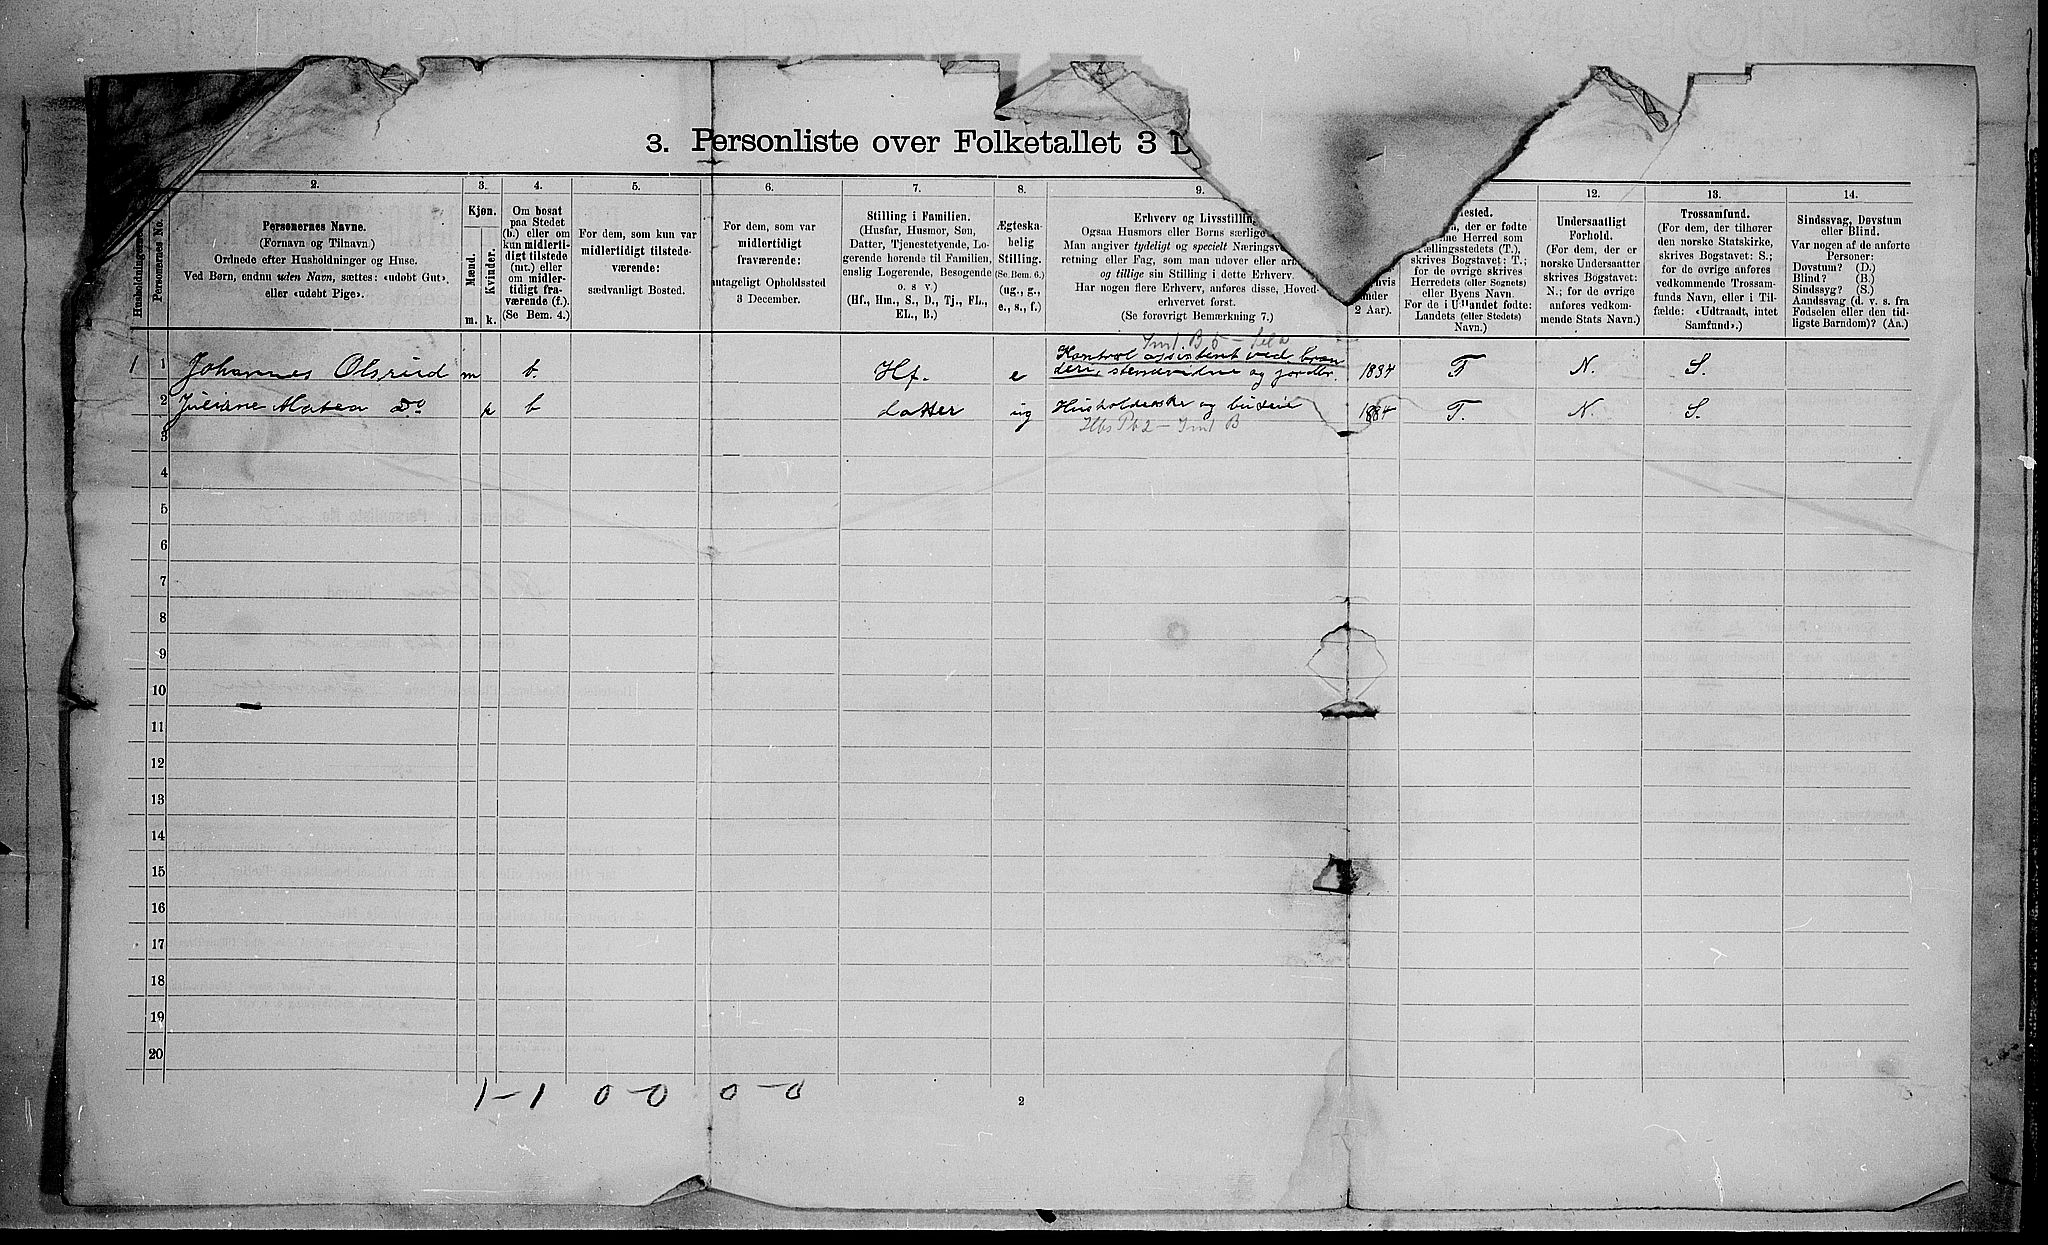 3. Personliste over Folketallet 3 D
Husholdningernes
Personernes No.
2.
Personernes Navne.
(Fornavn og Tilnavn.)
Ordnede efter Husholdninger og Huse.
Ved Børn, endnu uden Navn, sættes: «udøbt Gut»,
eller «udøbt Pige».
3.
Kjøn.
Mænd.
Kvinder.
m.
k.
4.
Om bosat
paa Stedet
(b.) eller om
kun midlerti-
digt tilstede
(mt.) eller
om midler-
tidigt fra-
værende (f.).
(Se Bem. 4.)
5.
For dem, som kun var
midlertidigt tilstede-
værende:
sædvanligt Bosted.
6.
For dem, som var
midlertidigt
fraværende:
antageligt Opholdssted
3 December.
7.
Stilling i Familien.
(Husfar, Husmor, Søn,
Datter, Tjenestetyende, Lo-
gerende hørende til Familien,
enslig Logerende, Besøgende
o. s v.)
(Hf., Hm., S., D., Tj., FL.,
EL., B.)
8.
Ægteska-
belig
Stilling.
(Se Bem. 6.)
(ug., g.,
e., s., f.)
9.
Erhverv og Livsstilling
Ogsaa Husmors eller Børns særlige
Man angiver tydeligt og specielt Næringsve
retning eller Fag, som man udøver eller ar
og tillige sin Stilling i dette Erhverv.
Har nogen flere Erhverv, anføres disse, Hoved-
erhvervet først.
(Se forøvrigt Bemærkning 7.)
hvis
under
2 Aar).
ested.
, der er fødte
me Herred som
ællingsstedets (T.),
skrives Bogstavet: T.;
for de øvrige skrives
Herredets (eller Sognets)
eller Byens Navn.
For de i Udlandet fødte:
Landets (eller Stedets)
Navn.)
12.
Undersaatligt
Forhold.
(For dem, der er
norske Undersaatter
skrives Bogstavet:
N.; for de øvrige
anføres vedkom-
mende Stats Navn.)
13.
Trossamfund.
(For dem, der tilhører
den norske Statskirke,
skrives Bogstavet: S.;
for de øvrige anføres
vedkommende Trossam-
funds Navn, eller i Til-
fælde: «Udtraadt, intet
Samfund».)
14.
Sindssvag, Døvstum
eller Blind.
Var nogen af de anførte
Personer:
Døvstum? (D.)
Blind? (B.)
Sindssyg? (S.)
Aandssvag (d. v. s. fra
Fødselen eller den tid-
ligste Barndom)? (Aa.)
1 1 Johannes Olsrud m b. Hf. e Kontrol assistent ved bræn 1834 T N. S.
deri, stenarvidne og jordbr.
2 Juliane Matea Do k b datter ug Husholderske og budeie 1884 T. N. S.
3
4
5
6
7
8
9
10
11
12
13
14
15
16
17
18
19
20
1-1 0-0 0-0
2